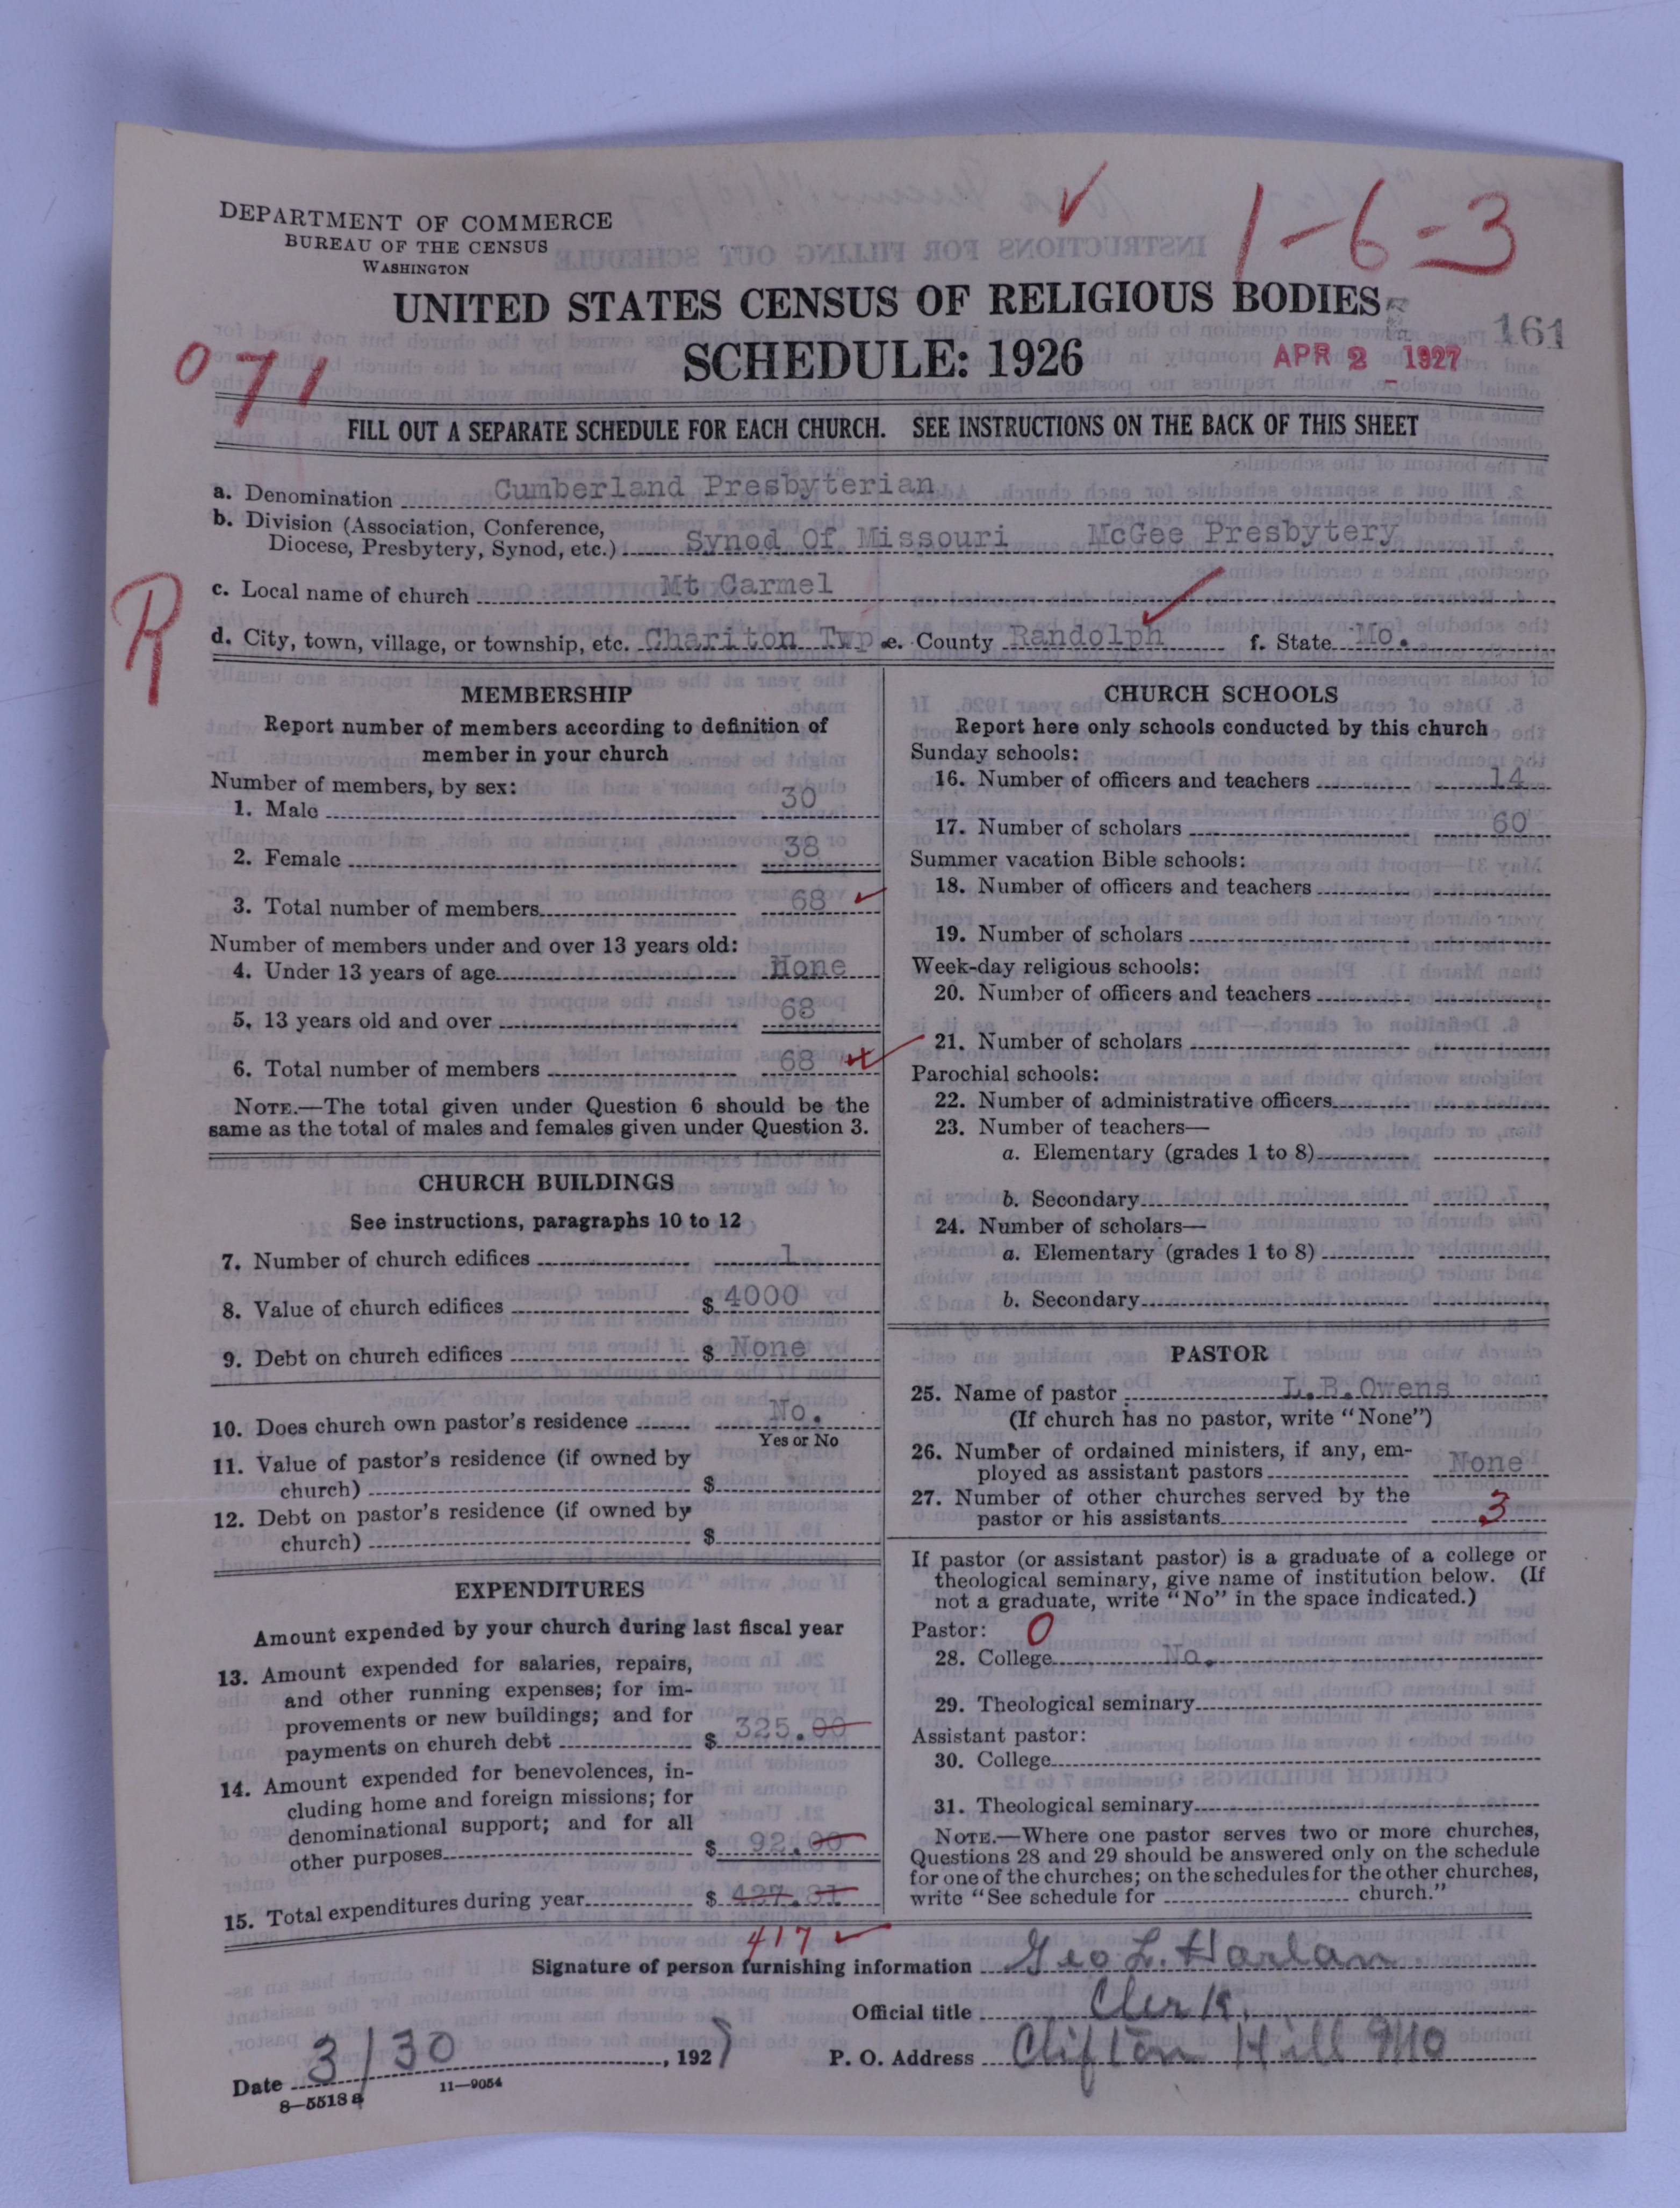 1-6-3
DEPARTMENT OF COMMERCE
BUREAU OF THE CENSUS
WASHINGTON
UNITED STATES CENSUS OF RELIGIOUS BODIES
161
SCHEDULE: 1926
APR 2 1927
071
FILL OUT A SEPARATE SCHEDULE FOR EACH CHURCH. SEE INSTRUCTIONS ON THE BACK OF THIS SHEET
a. Denomination Cumberland Presbyterian
b. Division (Association, Conference,
Diocese, Presbytery, Synod, etc.) Synod Of Missouri McGee Presbytery
R
c. Local name of church Mt Carmel
d. City, town, village, or township, etc. Chariton Twp e. County Randolph f. State Mo.
MEMBERSHIP
Report number of members according to definition of
member in your church
Number of members, by sex:
1. Male 30
2. Female 38
3. Total number of members 68
Number of members under and over 13 years old:
4. Under 13 years of age None
5. 13 years old and over 68
6. Total number of members 68
NOTE.—The total given under Question 6 should be the
same as the total of males and females given under Question 3.
CHURCH BUILDINGS
See instructions, paragraphs 10 to 12
7. Number of church edifices 1
8. Value of church edifices $ 4000
9. Debt on church edifices $ None
10. Does church own pastor's residence No.
Yes or No
11. Value of pastor's residence (if owned by
church) $
12. Debt on pastor's residence (if owned by
church) $
EXPENDITURES
Amount expended by your church during last fiscal year
13. Amount expended for salaries, repairs,
and other running expenses; for im-
provements or new buildings; and for
payments on church debt $ 325.00
14. Amount expended for benevolences, in-
cluding home and foreign missions; for
denominational support; and for all
other purposes $ 92.00
15. Total expenditures during year $ 427.31
417
CHURCH SCHOOLS
Report here only schools conducted by this church
Sunday schools:
16. Number of officers and teachers 14
17. Number of scholars 60
Summer vacation Bible schools:
18. Number of officers and teachers
19. Number of scholars
Week-day religious schools:
20. Number of officers and teachers
21. Number of scholars
Parochial schools:
22. Number of administrative officers
23. Number of teachers—
a. Elementary (grades 1 to 8)
b. Secondary
24. Number of scholars—
a. Elementary (grades 1 to 8)
b. Secondary
PASTOR
25. Name of pastor L.B.Owens
(If church has no pastor, write "None")
26. Number of ordained ministers, if any, em-
ployed as assistant pastors None
27. Number of other churches served by the
pastor or his assistants 3
If pastor (or assistant pastor) is a graduate of a college or
theological seminary, give name of institution below. (If
not a graduate, write "No" in the space indicated.)
Pastor: 0
28. College No.
29. Theological seminary
Assistant pastor:
30. College
31. Theological seminary
NOTE.—Where one pastor serves two or more churches,
Questions 28 and 29 should be answered only on the schedule
for one of the churches; on the schedules for the other churches,
write "See schedule for church."
Signature of person furnishing information Geo L. Harlan
Official title Clerk,
Date 3/30, 1927
P. O. Address Clifton Hill Mo
8—5513 a 11—9054